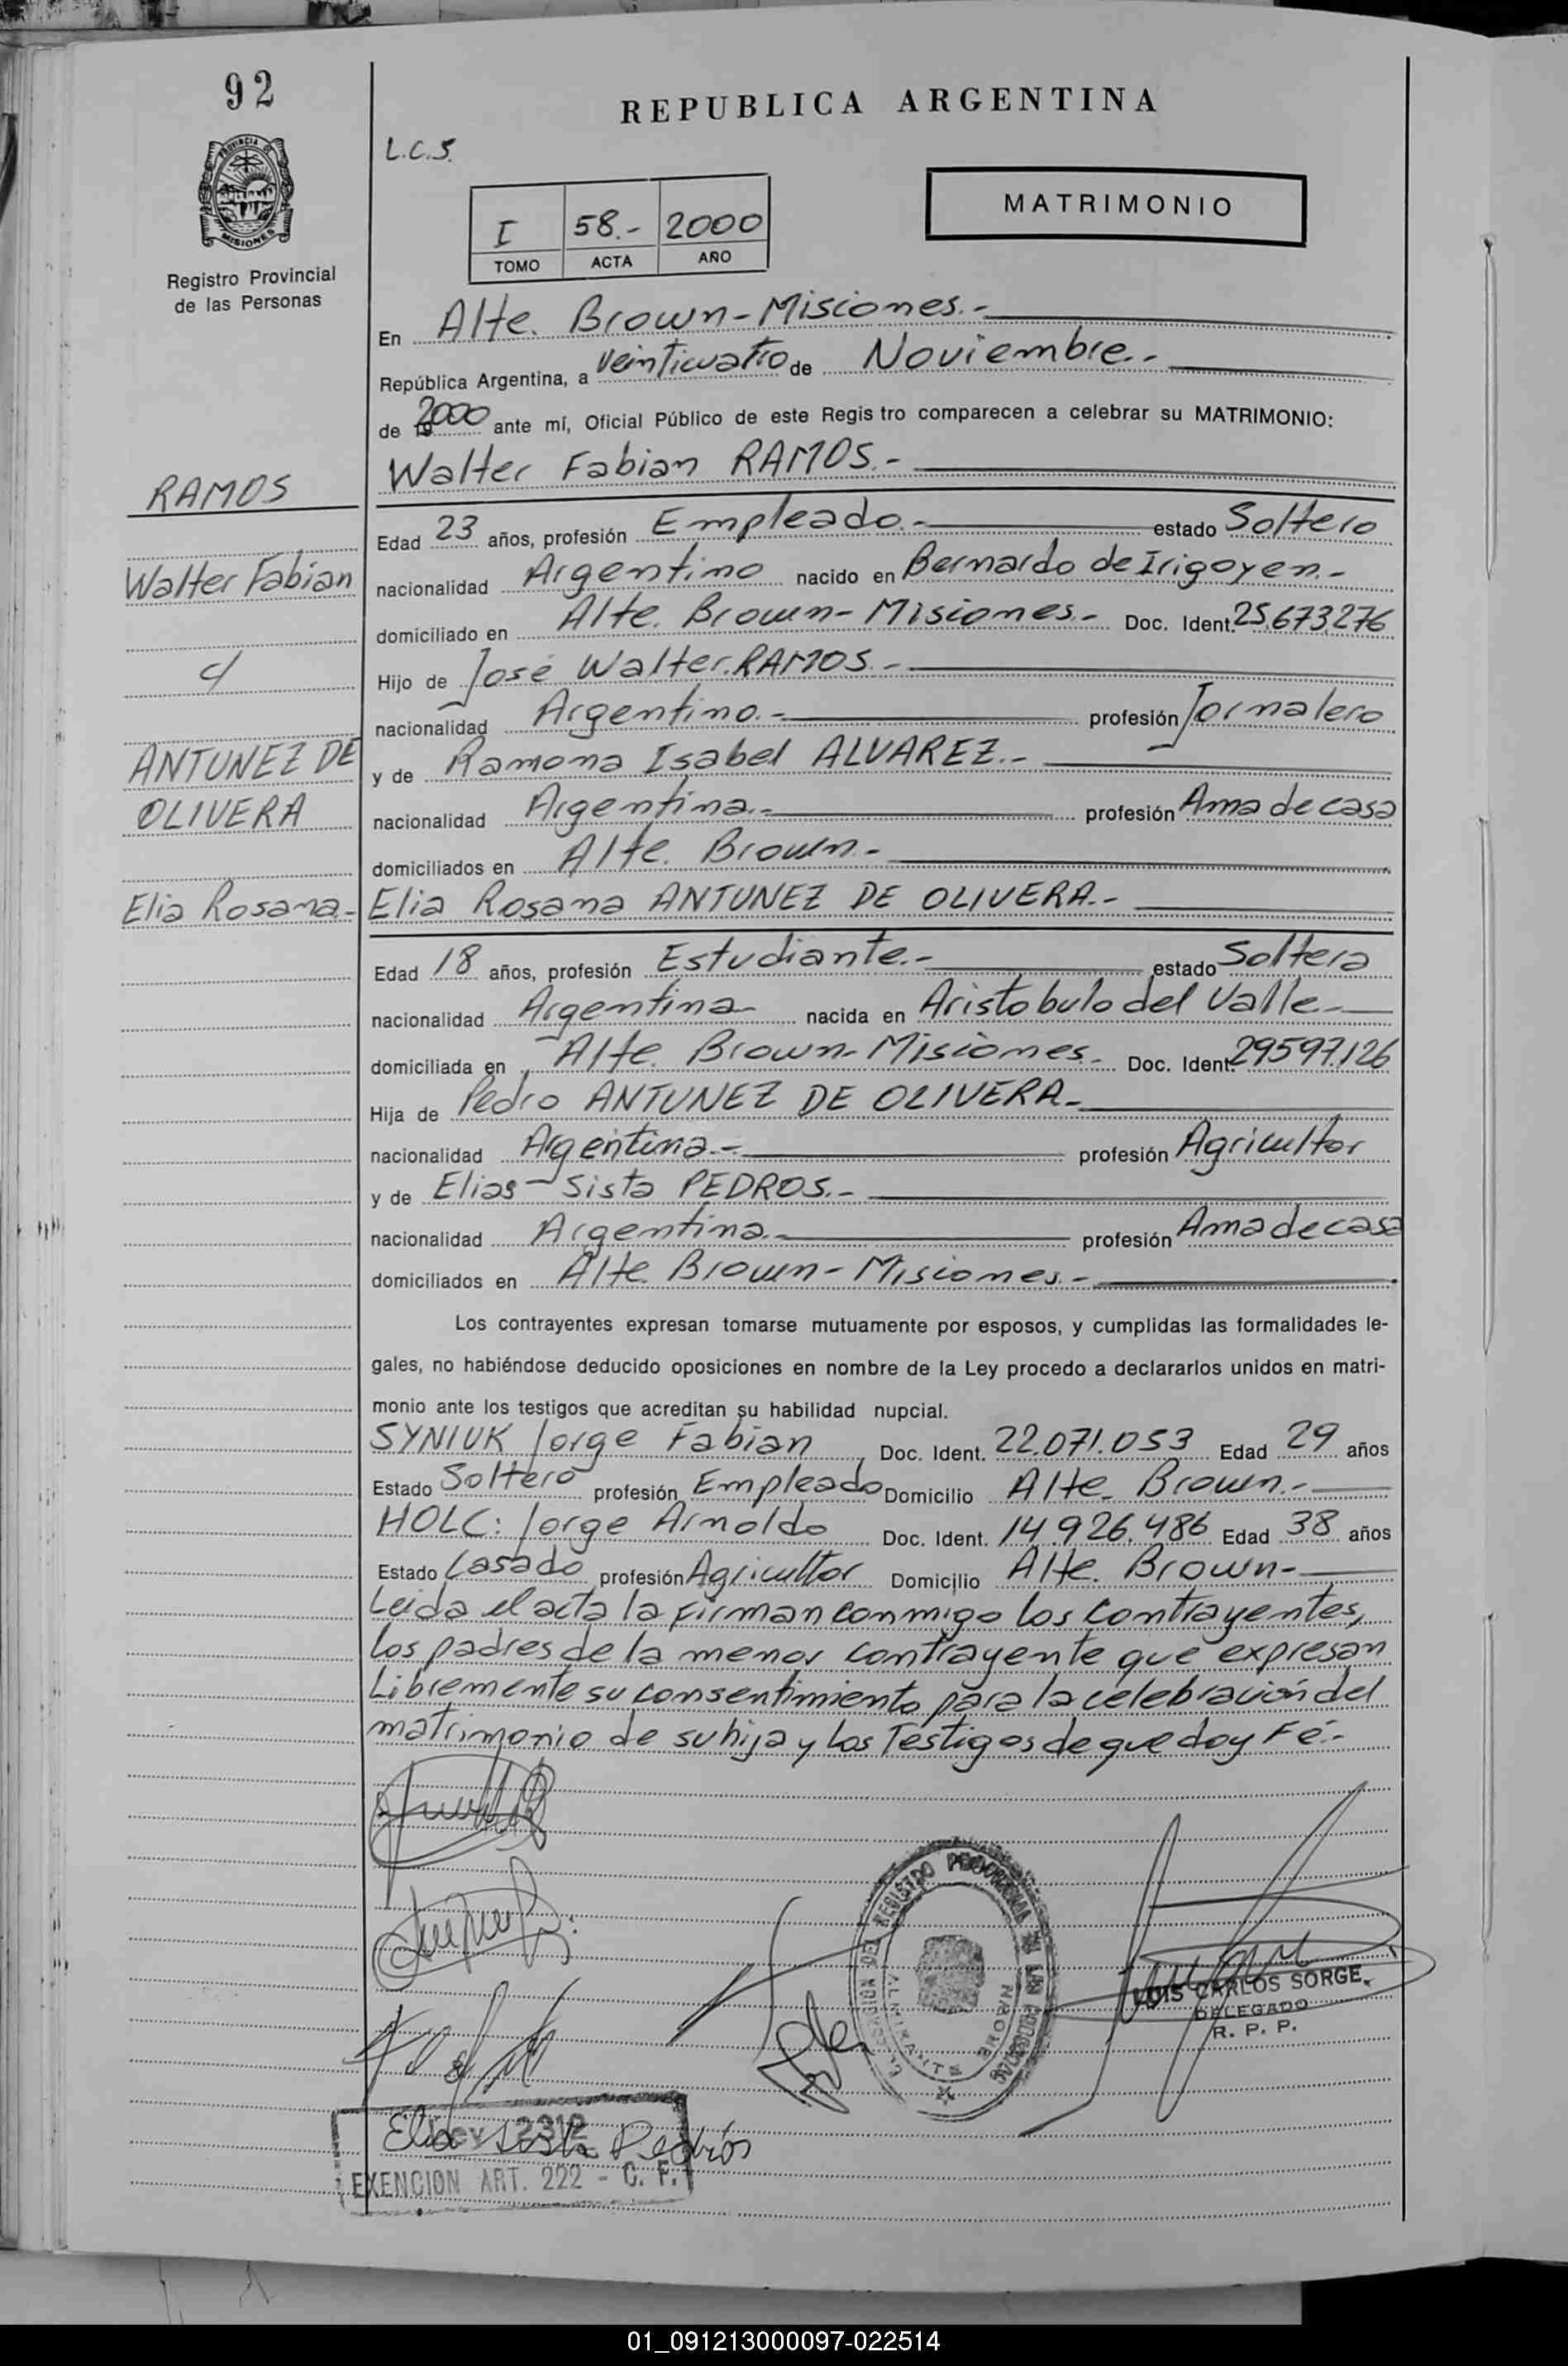 92
REPUBLICA ARGENTINA
L.C.S.
PROVINCIA DE MISIONES
Registro Provincial
de las Personas
MATRIMONIO
I 58.- 2000
TOMO ACTA AÑO
En Alte. Brown-Misiones.-
República Argentina, a veinticuatro de Noviembre.-
de 2000 ante mí, Oficial Público de este Regis tro comparecen a celebrar su MATRIMONIO:
Walter Fabian RAMOS.-
RAMOS
Edad 23 años, profesión Empleado.- estado Soltero
Walter Fabian
nacionalidad Argentino nacido en Bernardo de Irigoyen.-
domiciliado en Alte. Brown-Misiones.- Doc. Ident. 25.673.276
c/
Hijo de José Walter.RAMOS.-
nacionalidad Argentino.- profesión Jornalero
ANTUNEZ DE
y de Ramona Isabel ALVAREZ.-
OLIVERA
nacionalidad Argentina.- profesión Ama de casa
domiciliados en Alte. Brown.-
Elia Rosana.-
Elia Rosana ANTUNEZ DE OLIVERA.-
Edad 18 años, profesión Estudiante.- estado Soltera
nacionalidad Argentina nacida en Aristobulo del Valle.-
domiciliada en Alte. Brown-Misiones.- Doc. Ident. 29597.126
Hija de Pedro ANTUNEZ DE OLIVERA.-
nacionalidad Argentina.- profesión Agricultor
y de Elias Sista PEDROS.-
nacionalidad Argentina.- profesión Ama de casa
domiciliados en Alte. Brown-Misiones.-
Los contrayentes expresan tomarse mutuamente por esposos, y cumplidas las formalidades le-
gales, no habiéndose deducido oposiciones en nombre de la Ley procedo a declararlos unidos en matri-
monio ante los testigos que acreditan su habilidad nupcial.
SYNIUK Jorge Fabian Doc. Ident. 22.071.053 Edad 29 años
Estado Soltero profesión Empleado Domicilio Alte. Brown.-
HOLC: Jorge Arnoldo Doc. Ident. 14.926.486 Edad 38 años
Estado Casado profesión Agricultor Domicilio Alte. Brown-
Leida el acta la firman conmigo los contrayentes,
los padres de la menor contrayente que expresan
Libremente su consentimiento para la celebración del
matrimonio de su hija y los Testigos de que doy Fé.-
DEL REGISTRO DE LAS PERSONAS
ALMIRANTE BROWN
LUIS CARLOS SORGE
DELEGADO
R. P. P.
Ley 2312
Elia Sista Pedrós
EXENCION ART. 222 - C. F.
01_091213000097-022514